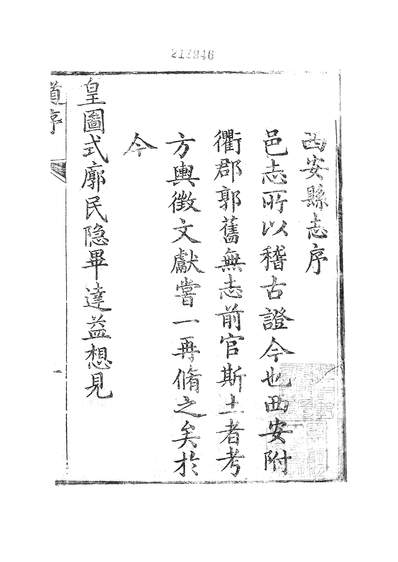 212846
西安縣志序
邑志所以稽古證今也西安附
衢郡郭舊無志前官斯土者考
方輿徵文獻嘗一再脩之矣於
今
皇圖式廓民隐畢達益想見
道序